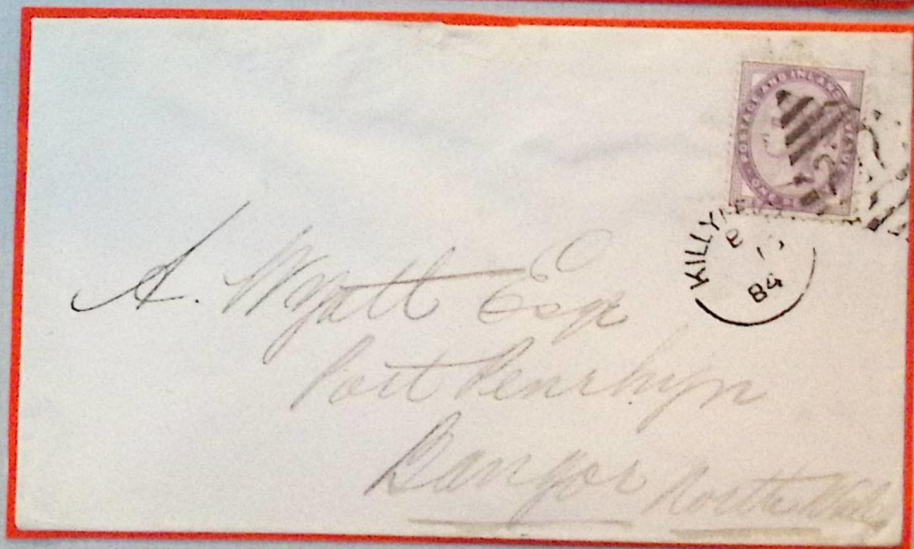 POSTAGE AND INLAND
KILLY
84
A. Wyatt Esqr
Port Penrhyn
Bangor North Wales